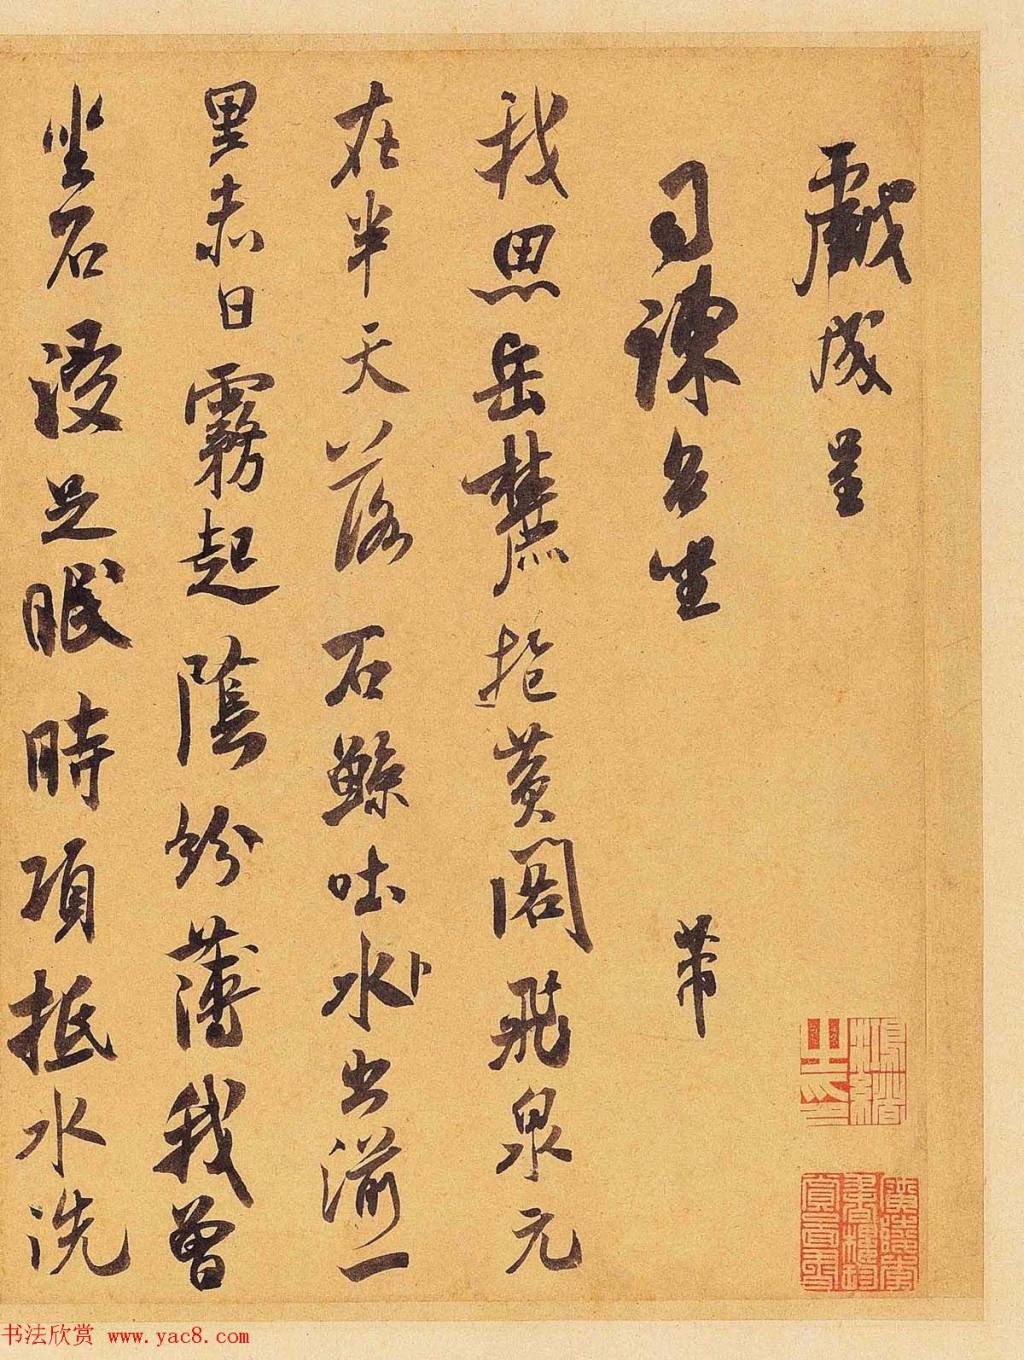 戲成呈
司諫台坐 芾
我思岳麓抱黃閣飛泉元
在半天落石鯨吐水出湔一
里赤日霧起陰紛薄我曾
坐石浸足眠時項抵水洗
书法欣赏 www.yac8.com